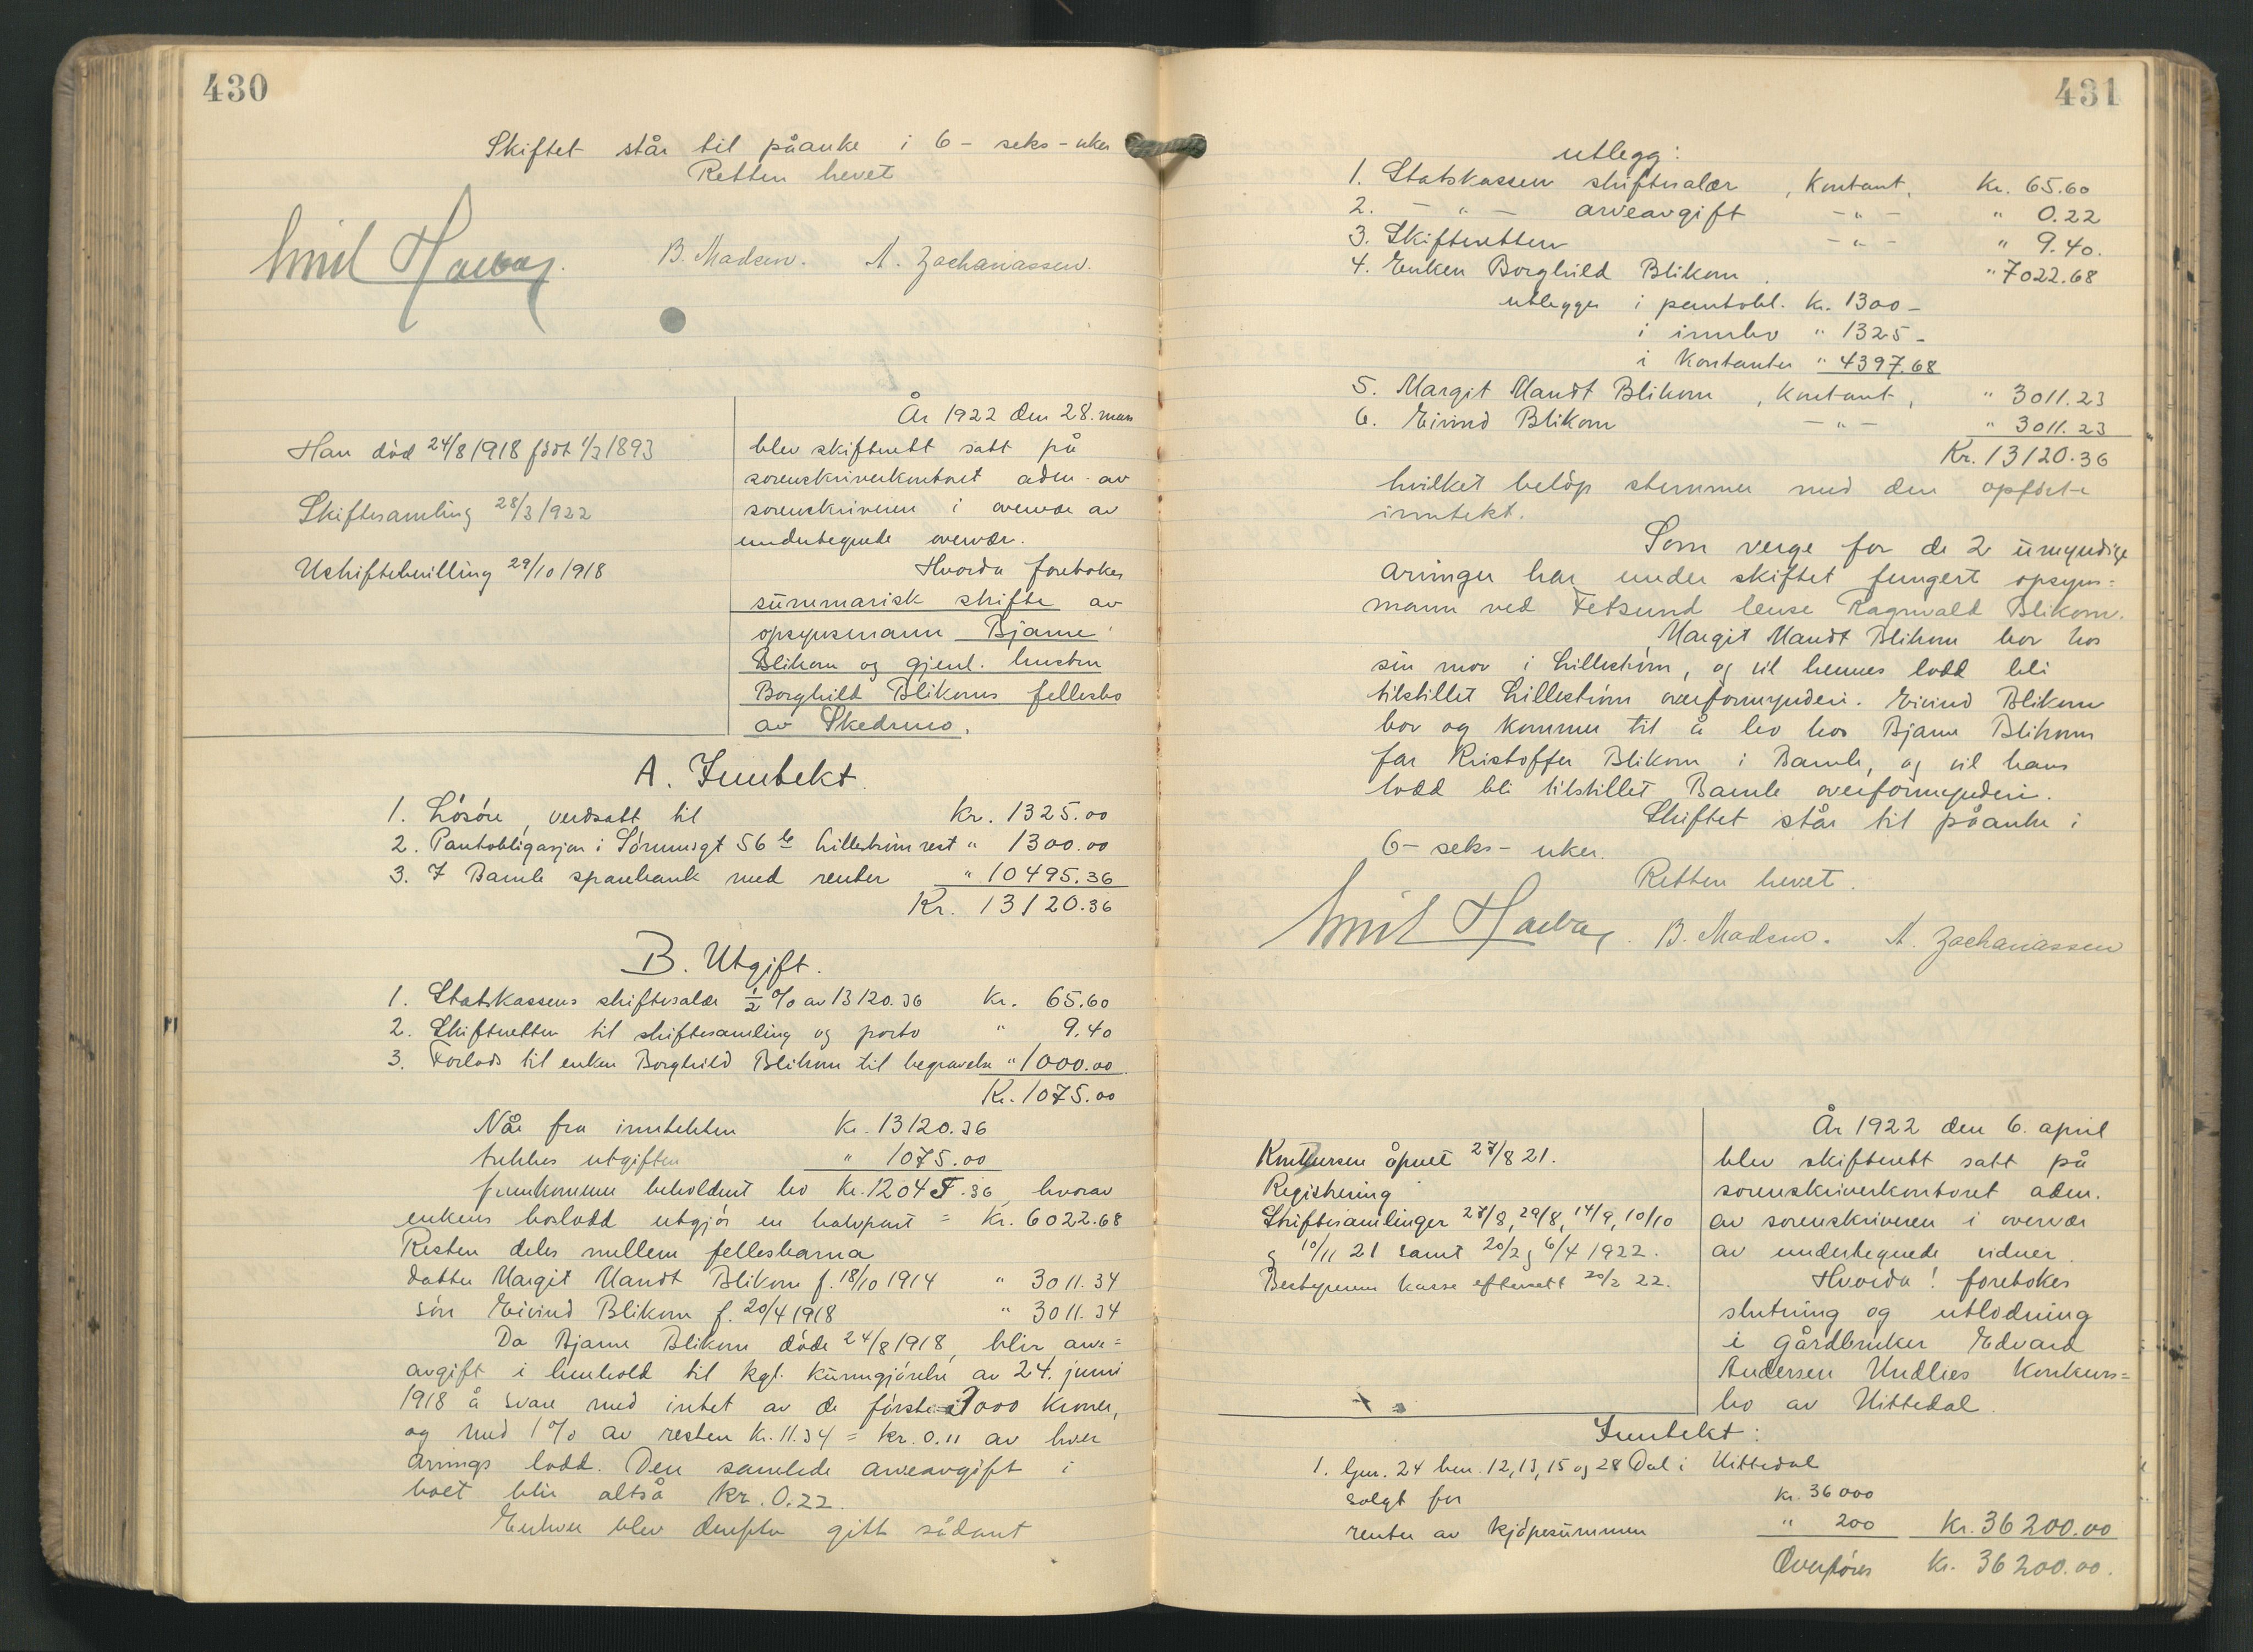 430
Skiftet står til påanke i 6 - seks - uker
Retten hevet
Emil
B. Madsen. A. Zachariassen.
Han död 24/8 1918 född 1/3 1893
Skiftesamling 28/3 1922
Uskiftebevilling 29/10 1918
År 1922 den 28. mars
blev skifterett satt på
sorenskriverkontoret adm. av
sorenskriveren i overvær av
undertegnede overvær.
Hvorda foretokes
summarisk skifte av
opsynsmann Bjarne
Blikom og gjenl. hustru
Borghild Blikoms fellesbo
av Skedsmo.
A. Inntekt.
1. Lösöre, verdsatt til Kr. 1325.00
2. Pantobligasjon i Lillestrøm rest " 1300.00
3. I Bamle sparebank med renter " 10495.36
Kr. 13120.36
B. Utgift.
1. Statskassens skiftesalær 1/2 % av 13120.36 Kr. 65.60
2. Skifteretten til skiftesamling og porto " 9.40
3. Forlods til enken Borghild Blikom til begravelse " 1000.00
Kr. 1075.00
Når fra inntekten Kr. 13120.36
trekkes utgiften " 1075.00
fremkommer beholdent bo Kr. 12045.36, hvorav
enkens boslodd utgjör en halvpart = Kr. 6022.68
Resten deles mellem fellesbarna
datter Margit Mandt Blikom f. 18/10 1914 " 3011.34
sön Eivind Blikom f. 20/4 1918 " 3011.34
Da Bjarne Blikom döde 24/8 1918, blir arve=
avgift i henhold til kgl. kunngjörelse av 24. juni
1918 å svare med intet av de förste 3000 kroner,
og med 1 % av resten kr. 11.34 = kr. 0.11 av hver
arvings lodd. Den samlede arveavgift i
boet blir altså Kr. 0.22.
Enhver blev derefter gitt sådant
431
utlegg:
1. Statskassen skiftesalær, kontant, Kr. 65.60
2. - " - arveavgift - " - " 0.22
3. Skifteretten - " - " 9.40.
4. Enken Borghild Blikom " 7022.68
utlegges i pantobl. kr. 1300 -
i innbo " 1325 -
i kontanter " 4397.68
5. Margit Mandt Blikom, kontant, " 3011.23
6. Eivind Blikom - " - " 3011.23
Kr. 13120.36
hvilket belöp stemmer med den opförte
inntekt.
Som verge for de 2 umyndige
arvinger har under skiftet fungert opsyns=
mann ved Fetsund lense Ragnvald Blikom.
Margit Mandt Blikom bor hos
sin mor i Lilleström, og vil hennes lodd bli
tilstillet Lilleström overformynderi. Eivind Blikom
bor og kommer til å bo hos Bjarne Blikoms
far Kristoffer Blikom i Bamle, og vil hans
lodd bli tilstillet Bamle overformynderi.
Skiftet står til påanke i
6 - seks - uker.
Retten hevet.
Emil
B. Madsen. A. Zachariassen
Konkursen åpnet 27/8 21.
Registrering
Skiftesamlinger 27/8, 29/8, 14/9, 10/10
og 10/11 21 samt 20/2 og 6/4 1922.
Bestyrerens kasse eftersett 20/2 22.
År 1922 den 6. april
blev skifterett satt på
sorenskriverkontoret adm.
av sorenskriveren i overvær
av undertegnede vidner
Hvorda! foretokes
slutning og utlodning
i gårdbruker Edvard
Andersen Undlies konkurs=
bo av Nittedal.
Inntekt:
1. Gnr. 24 bnr. 12, 13, 15 og 28 Dal i Nittedal
solgt for kr. 36000
renter av kjöpesummen " 200 Kr. 36200.00
Overföres Kr. 36200.00.